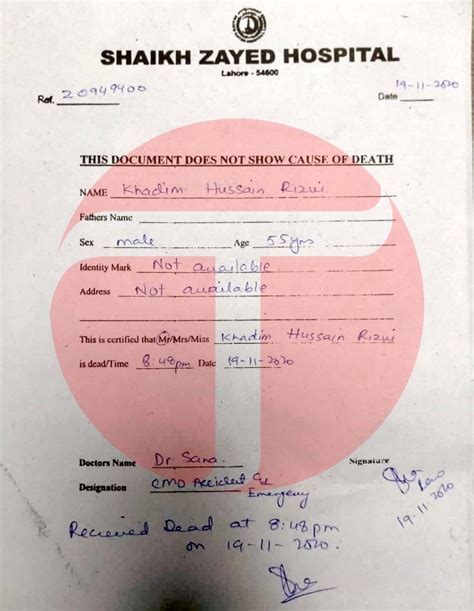 SHAIKH ZAYED HOSPITAL
Lahore - 54600
Ref. 20949400
Date 19-11-2020
THIS DOCUMENT DOES NOT SHOW CAUSE OF DEATH
NAME Khadim Hussain Rizvi
Fathers Name
Sex male Age 55yrs
Identity Mark Not available
Address Not available
This is certified that Mr/Mrs/Miss Khadim Hussain Rizvi
is dead/Time 8:48pm Date 19-11-2020
Doctors Name Dr Sana Signature
Designation CMO Accident &
Emergency
19-11-2020
Recieved Dead at 8:48pm
on 19-11-2020.